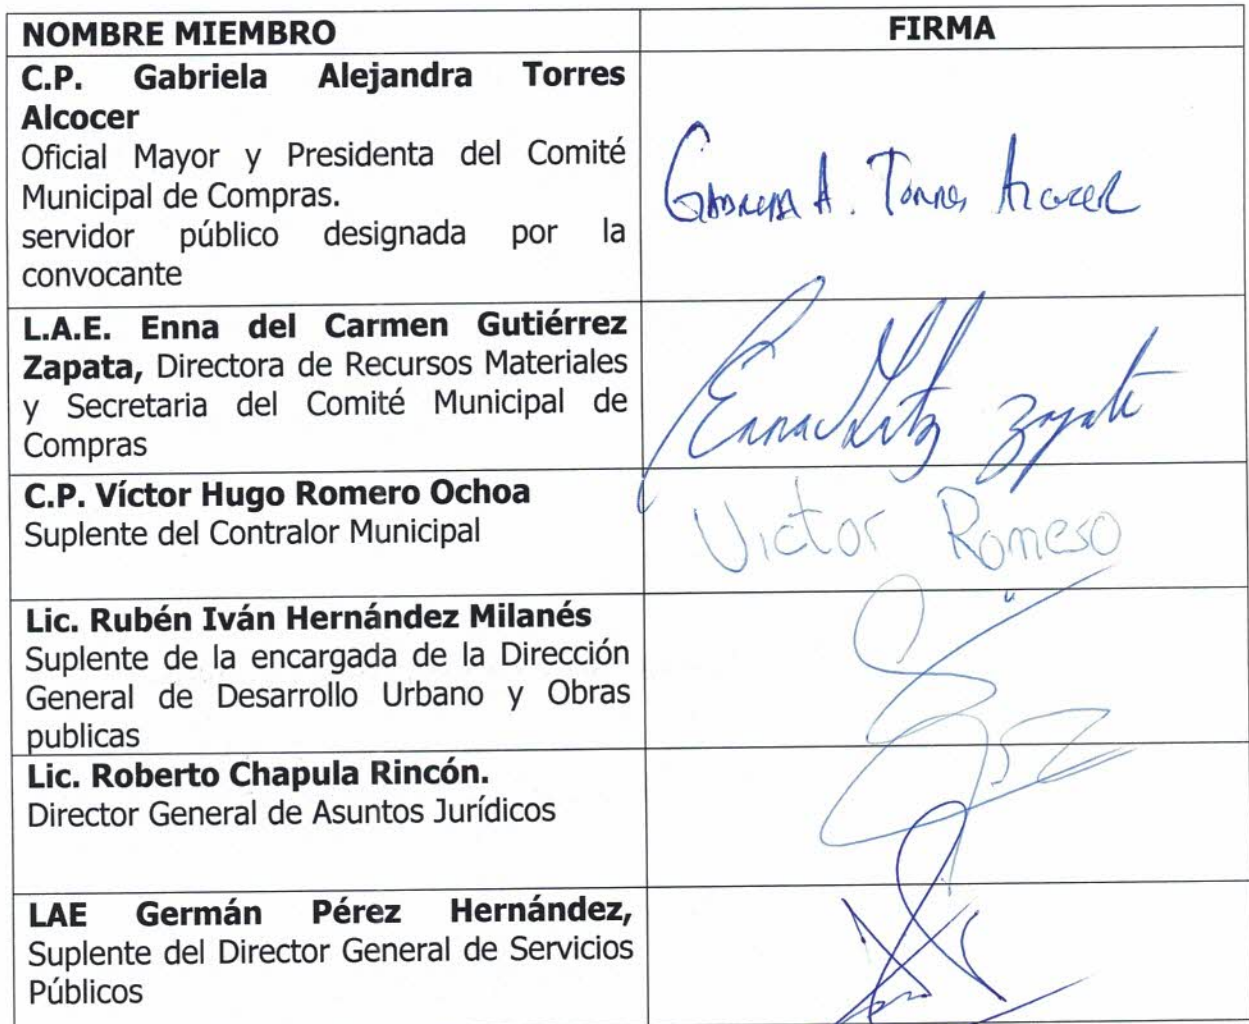 NOMBRE MIEMBRO
FIRMA
C.P. Gabriela Alejandra Torres
Alcocer
Oficial Mayor y Presidenta del Comité
Municipal de Compras.
servidor público designada por la
convocante
Gabriela A. Torres Alcocer
L.A.E. Enna del Carmen Gutiérrez
Zapata, Directora de Recursos Materiales
y Secretaria del Comité Municipal de
Compras
Enna Gtz Zapata
C.P. Víctor Hugo Romero Ochoa
Suplente del Contralor Municipal
Victor Romero
Lic. Rubén Iván Hernández Milanés
Suplente de la encargada de la Dirección
General de Desarrollo Urbano y Obras
publicas
Lic. Roberto Chapula Rincón.
Director General de Asuntos Jurídicos
LAE Germán Pérez Hernández,
Suplente del Director General de Servicios
Públicos